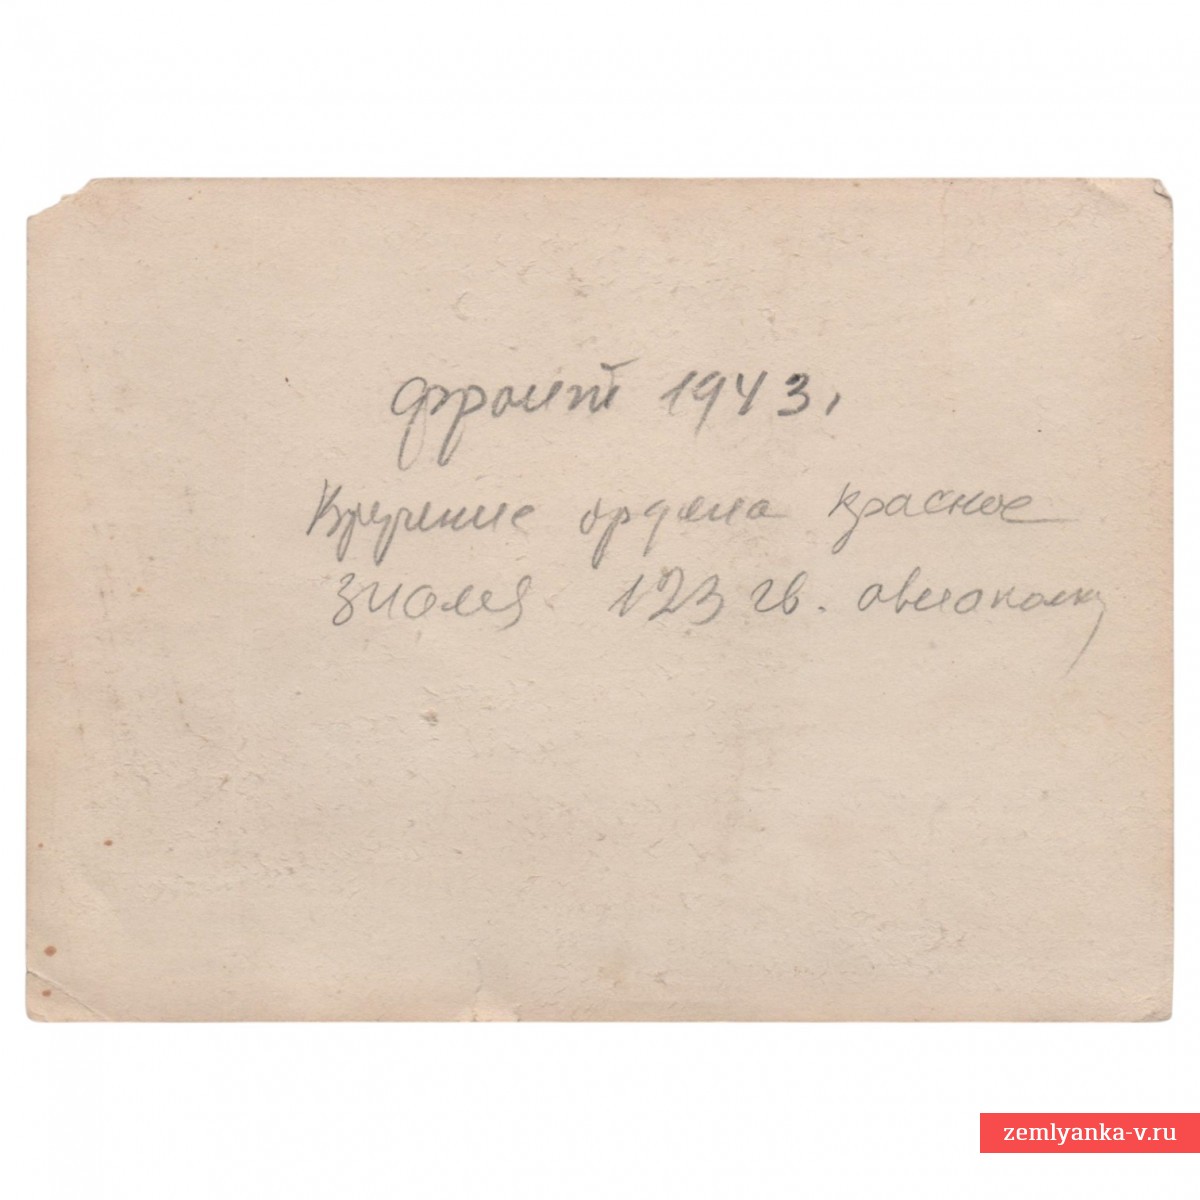 фронт 1943.
Вручение ордена Красное
знамя 123 гв. авиаполку
zemlyanka-v.ru